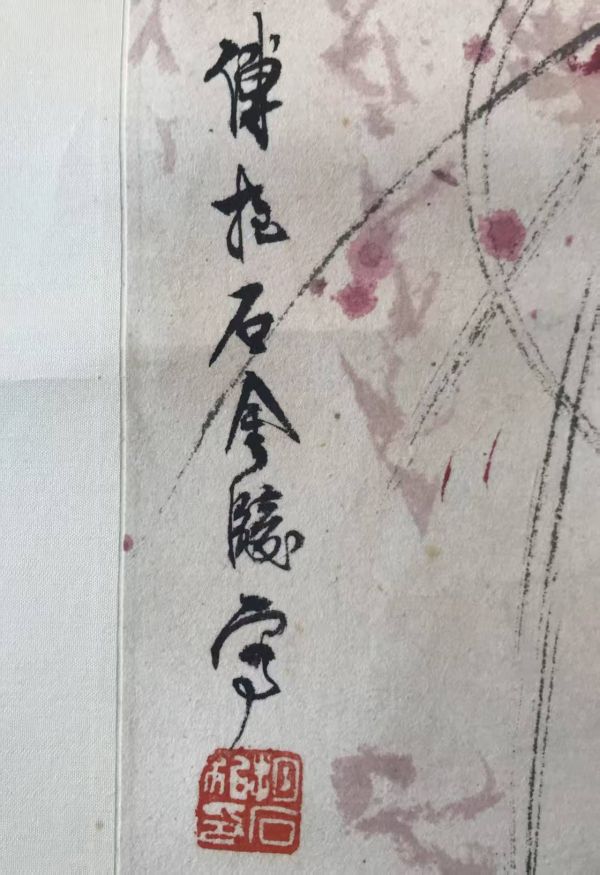 傅抱石金陵寫
抱石私印